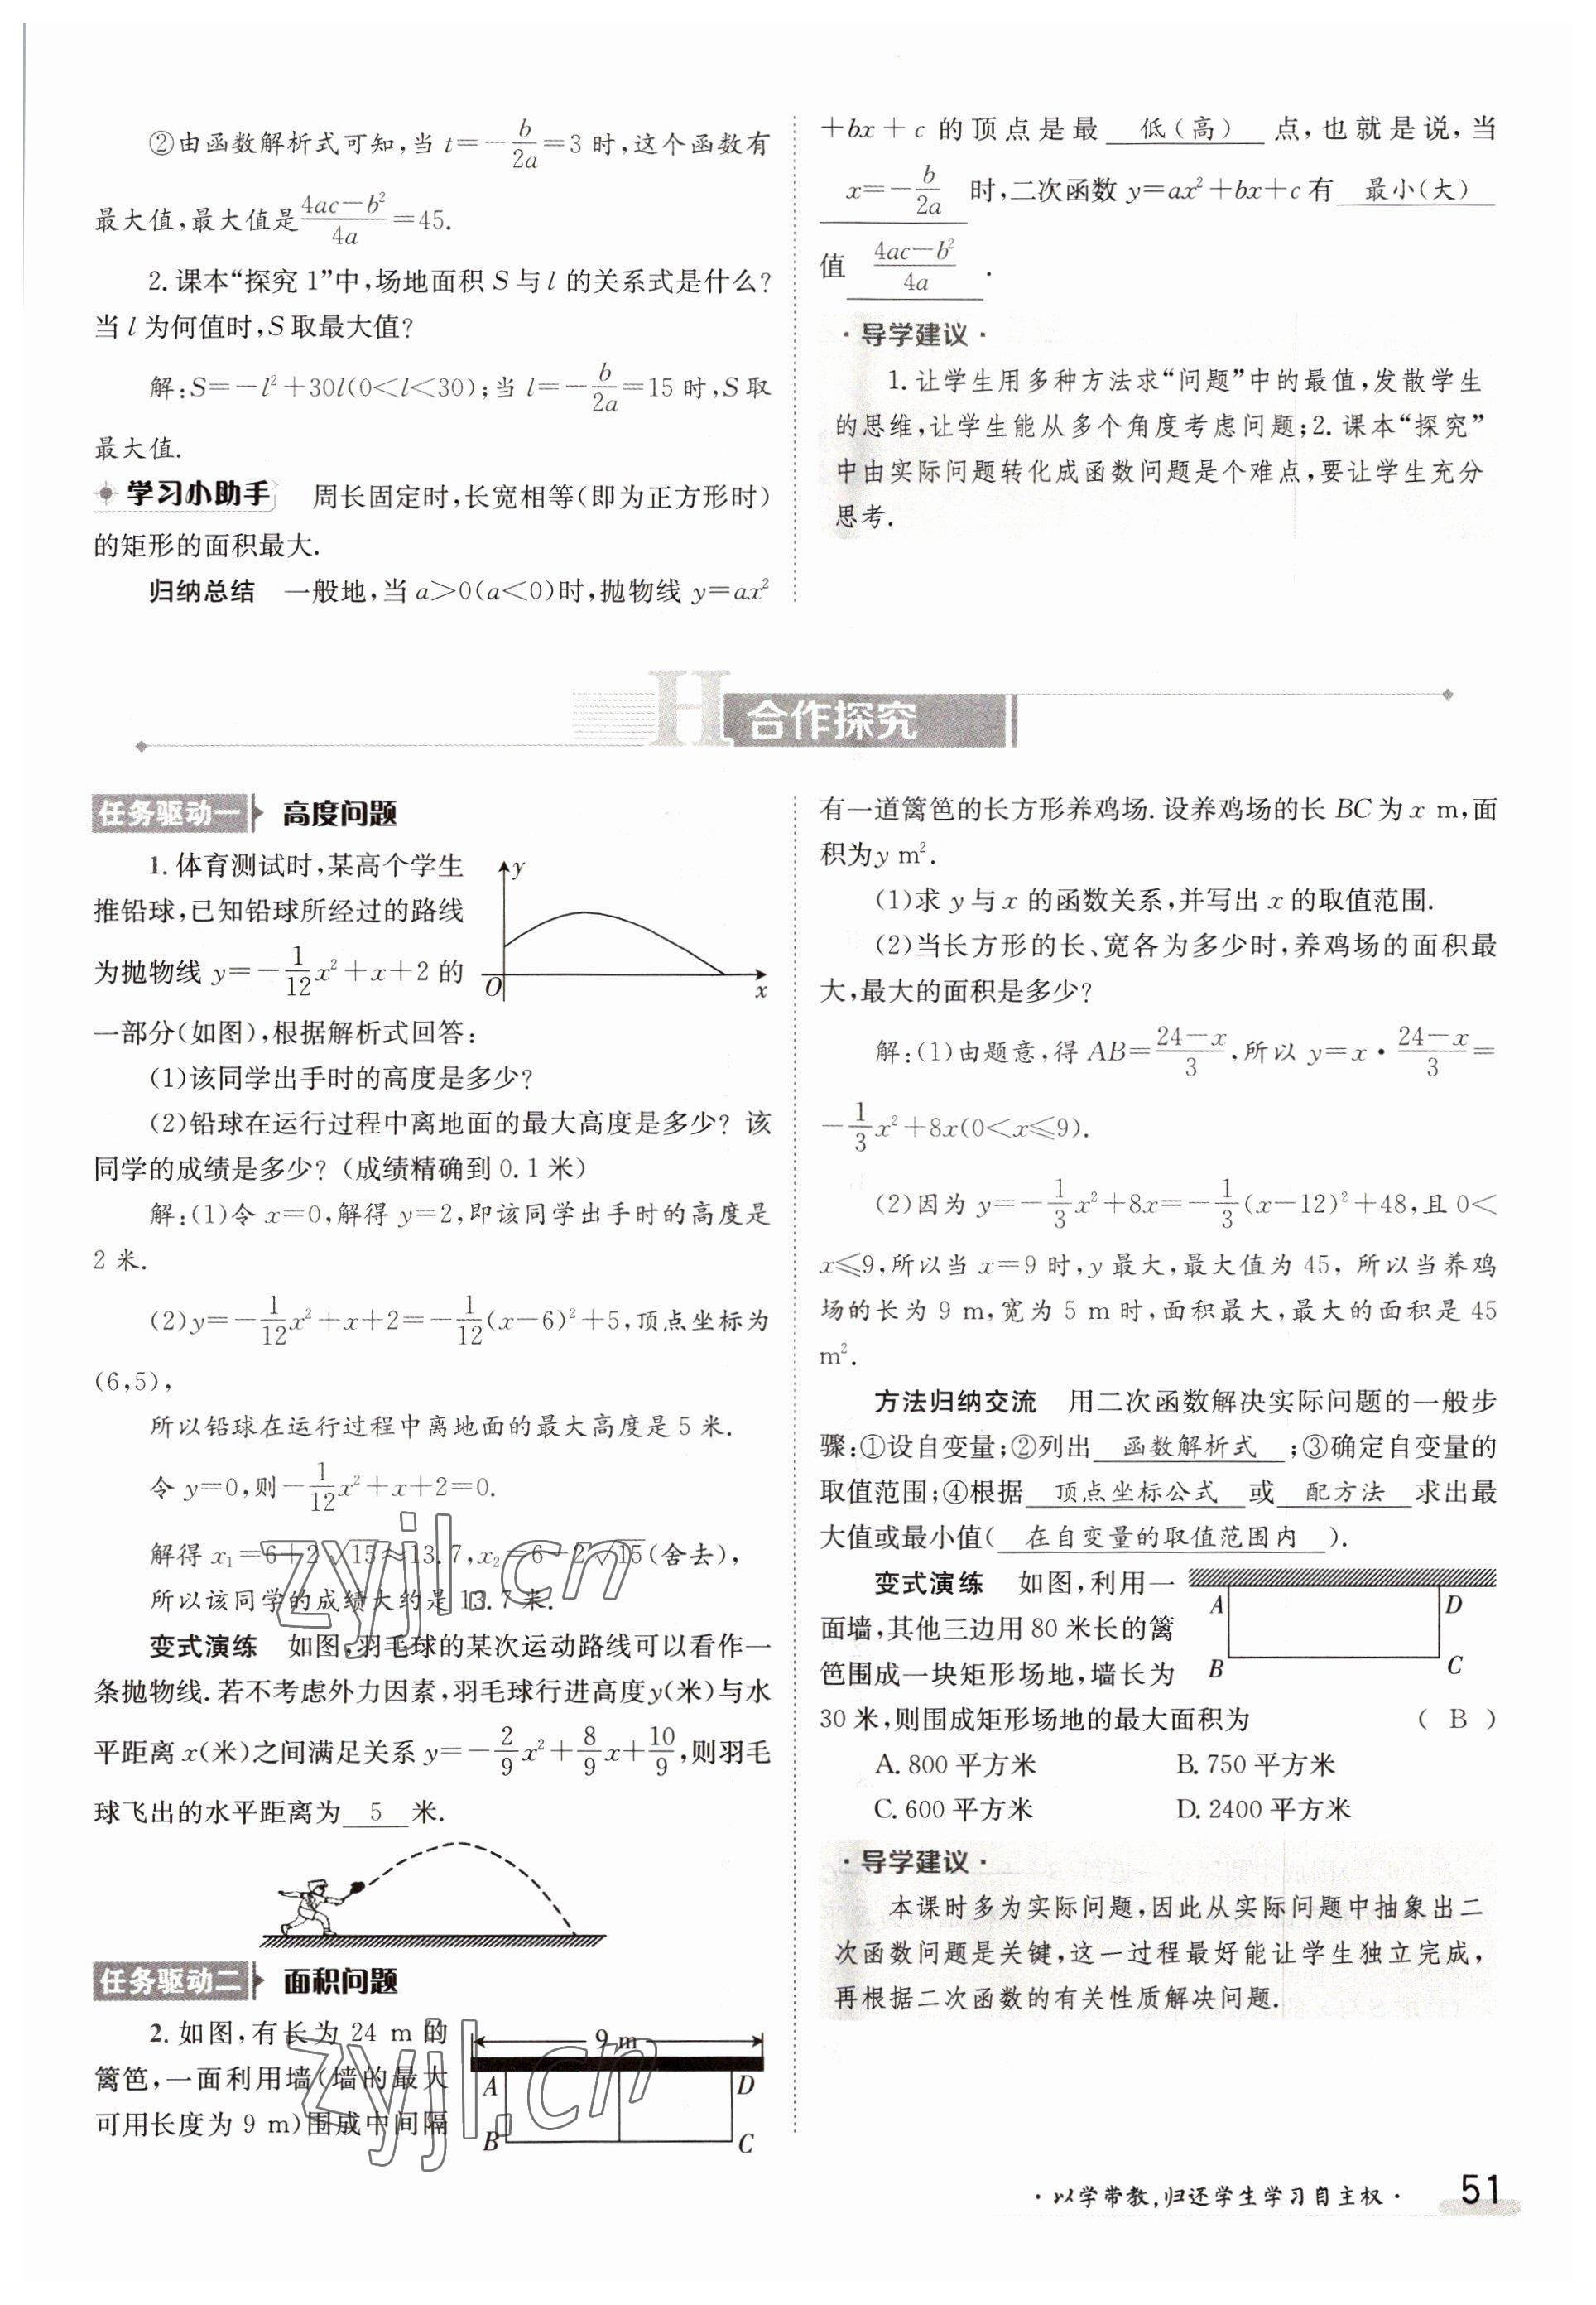 ②由函数解析式可知,当 t=-b/2a=3 时,这个函数有
最大值,最大值是(4ac-b²)/4a=45.
2.课本“探究 1”中,场地面积 S 与 l 的关系式是什么?
当 l 为何值时,S 取最大值?
解:S=-l²+30l(0<l<30);当 l=-b/2a=15 时,S 取
最大值.
学习小助手 周长固定时,长宽相等(即为正方形时)
的矩形的面积最大.
归纳总结 一般地,当 a>0(a<0)时,抛物线 y=ax²
+bx+c 的顶点是最 低(高) 点,也就是说,当
x=-b/2a 时,二次函数 y=ax²+bx+c 有 最小(大)
值 (4ac-b²)/4a .
·导学建议·
1.让学生用多种方法求“问题”中的最值,发散学生
的思维,让学生能从多个角度考虑问题;2.课本“探究”
中由实际问题转化成函数问题是个难点,要让学生充分
思考.
H 合作探究
任务驱动一 高度问题
1.体育测试时,某高个学生
推铅球,已知铅球所经过的路线
为抛物线 y=-1/12x²+x+2 的
y
O
x
一部分(如图),根据解析式回答:
(1)该同学出手时的高度是多少?
(2)铅球在运行过程中离地面的最大高度是多少? 该
同学的成绩是多少?(成绩精确到 0.1 米)
解:(1)令 x=0,解得 y=2,即该同学出手时的高度是
2 米.
(2)y=-1/12x²+x+2=-1/12(x-6)²+5,顶点坐标为
(6,5),
所以铅球在运行过程中离地面的最大高度是 5 米.
令 y=0,则-1/12x²+x+2=0.
解得 x₁=6+2√15≈13.7,x₂=6-2√15(舍去),
所以该同学的成绩大约是 13.7 米.
变式演练 如图,羽毛球的某次运动路线可以看作一
条抛物线.若不考虑外力因素,羽毛球行进高度y(米)与水
平距离 x(米)之间满足关系 y=-2/9x²+8/9x+10/9,则羽毛
球飞出的水平距离为 5 米.
任务驱动二 面积问题
2.如图,有长为 24 m 的
篱笆,一面利用墙(墙的最大
可用长度为 9 m)围成中间隔
9 m
A
D
B
C
有一道篱笆的长方形养鸡场.设养鸡场的长 BC 为 x m,面
积为y m².
(1)求 y 与 x 的函数关系,并写出 x 的取值范围.
(2)当长方形的长、宽各为多少时,养鸡场的面积最
大,最大的面积是多少?
解:(1)由题意,得 AB=(24-x)/3,所以 y=x·(24-x)/3=
-1/3x²+8x(0<x≤9).
(2)因为 y=-1/3x²+8x=-1/3(x-12)²+48,且 0<
x≤9,所以当 x=9 时,y 最大,最大值为 45,所以当养鸡
场的长为 9 m,宽为 5 m 时,面积最大,最大的面积是 45
m².
方法归纳交流 用二次函数解决实际问题的一般步
骤:①设自变量;②列出 函数解析式 ;③确定自变量的
取值范围;④根据 顶点坐标公式 或 配方法 求出最
大值或最小值( 在自变量的取值范围内 ).
变式演练 如图,利用一
面墙,其他三边用 80 米长的篱
笆围成一块矩形场地,墙长为
A
D
B
C
30 米,则围成矩形场地的最大面积为 ( B )
A.800 平方米 B.750 平方米
C.600 平方米 D.2400 平方米
·导学建议·
本课时多为实际问题,因此从实际问题中抽象出二
次函数问题是关键,这一过程最好能让学生独立完成,
再根据二次函数的有关性质解决问题.
·以学带教,归还学生学习自主权· 51
zyjl.cn
zyjl.cn